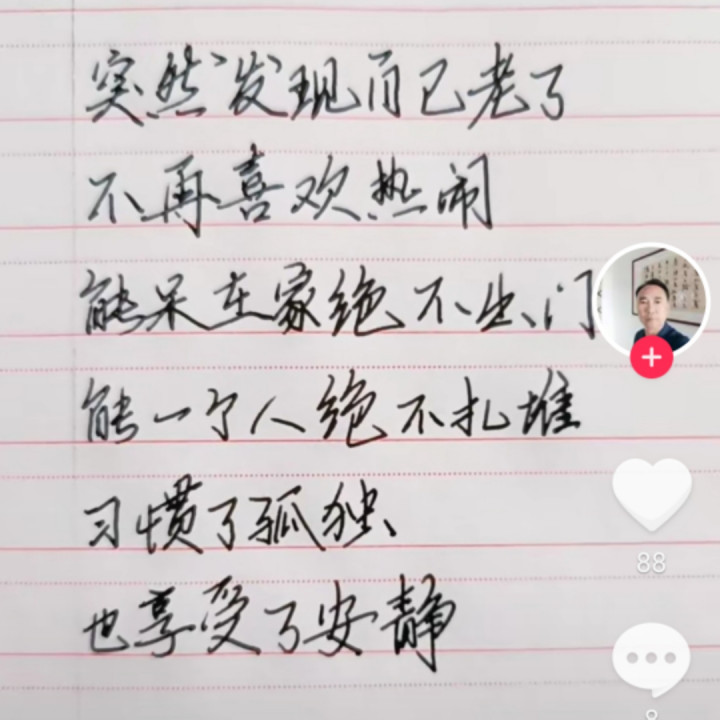 突然发现自己老了
不再喜欢热闹
能呆在家绝不出门
能一个人绝不扎堆
习惯了孤独
也享受了安静
88